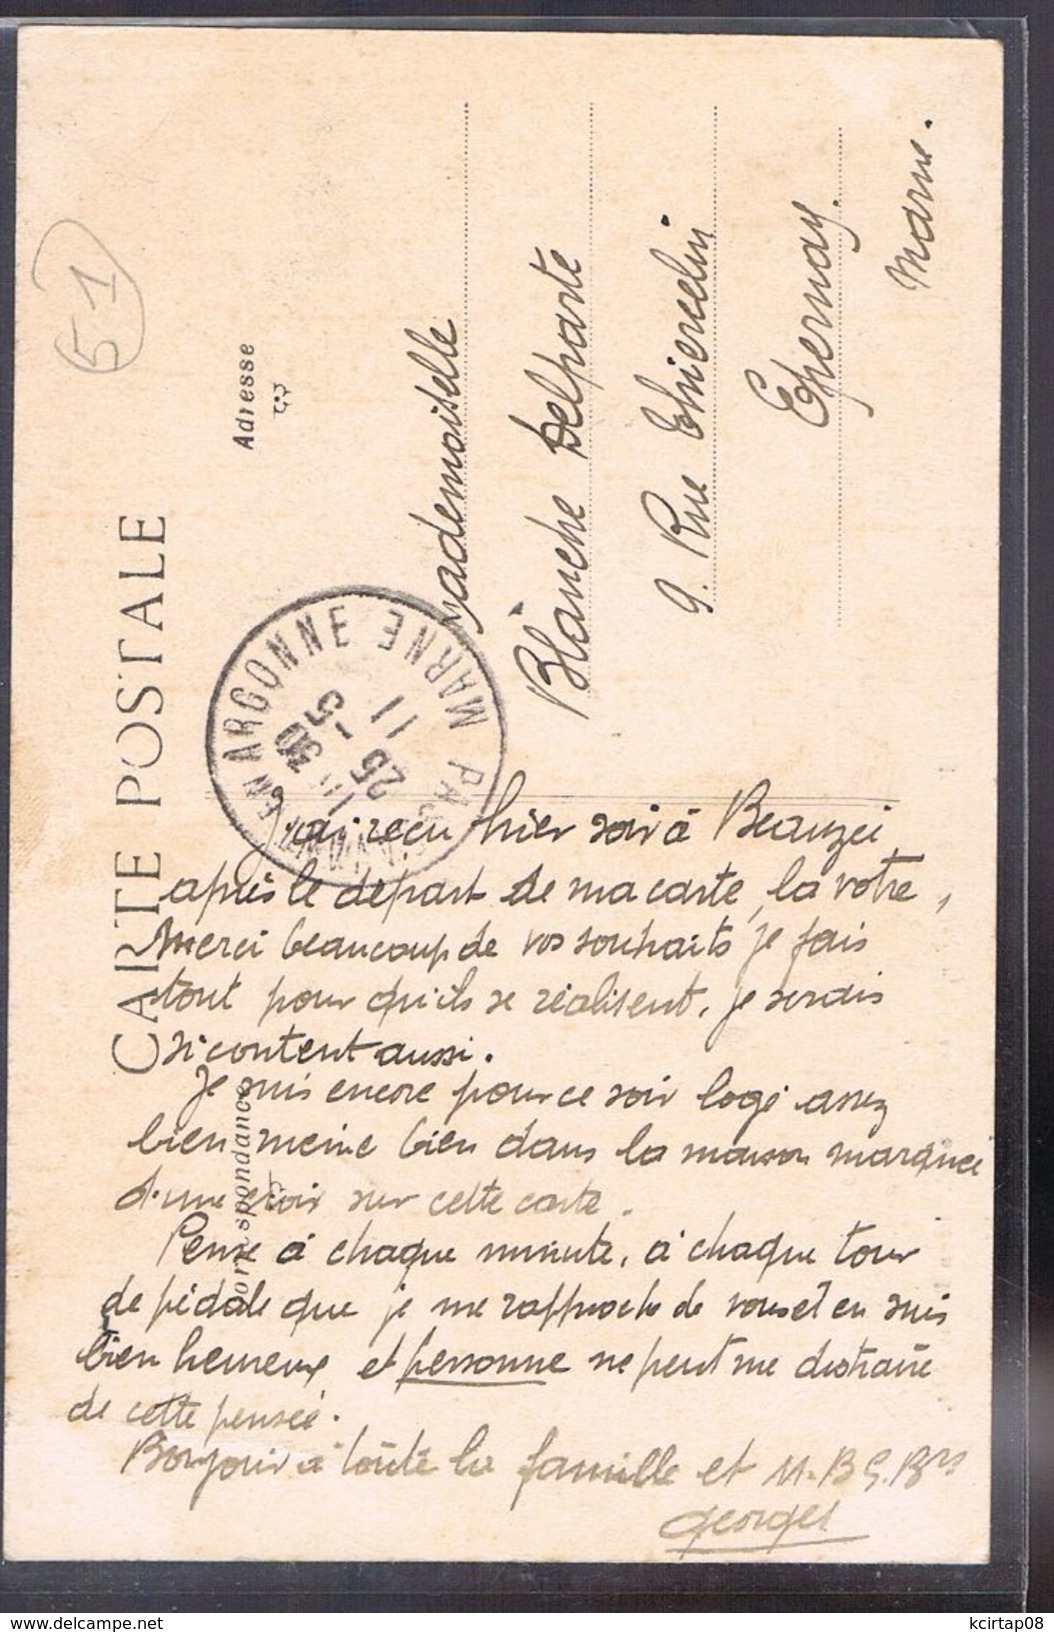 CARTE POSTALE
Correspondance
Adresse
51
EN ARGONNE MARNE
30
25 -5
11
Mademoiselle
Blanche Delparte
9. Rue Thiercelin
Epernay.
Marne.
J'ai reçu hier soir à Beauzei
après le départ de ma carte, la votre,
Merci beaucoup de vos souhaits je fais
tout pour qu'ils se réalisent, je serais
si content aussi.
Je suis encore pour ce soir logé assez
bien meme bien dans la maison marquée
d'une croix sur cette carte.
Pense à chaque minute, à chaque tour
de pédale que je me rapproche de vous et en suis
bien heureux et personne ne peut me distraire
de cette pensée.
Bonjour à toute la famille et M. B G. Brs
Georges
delcampe.net
kcirtap08